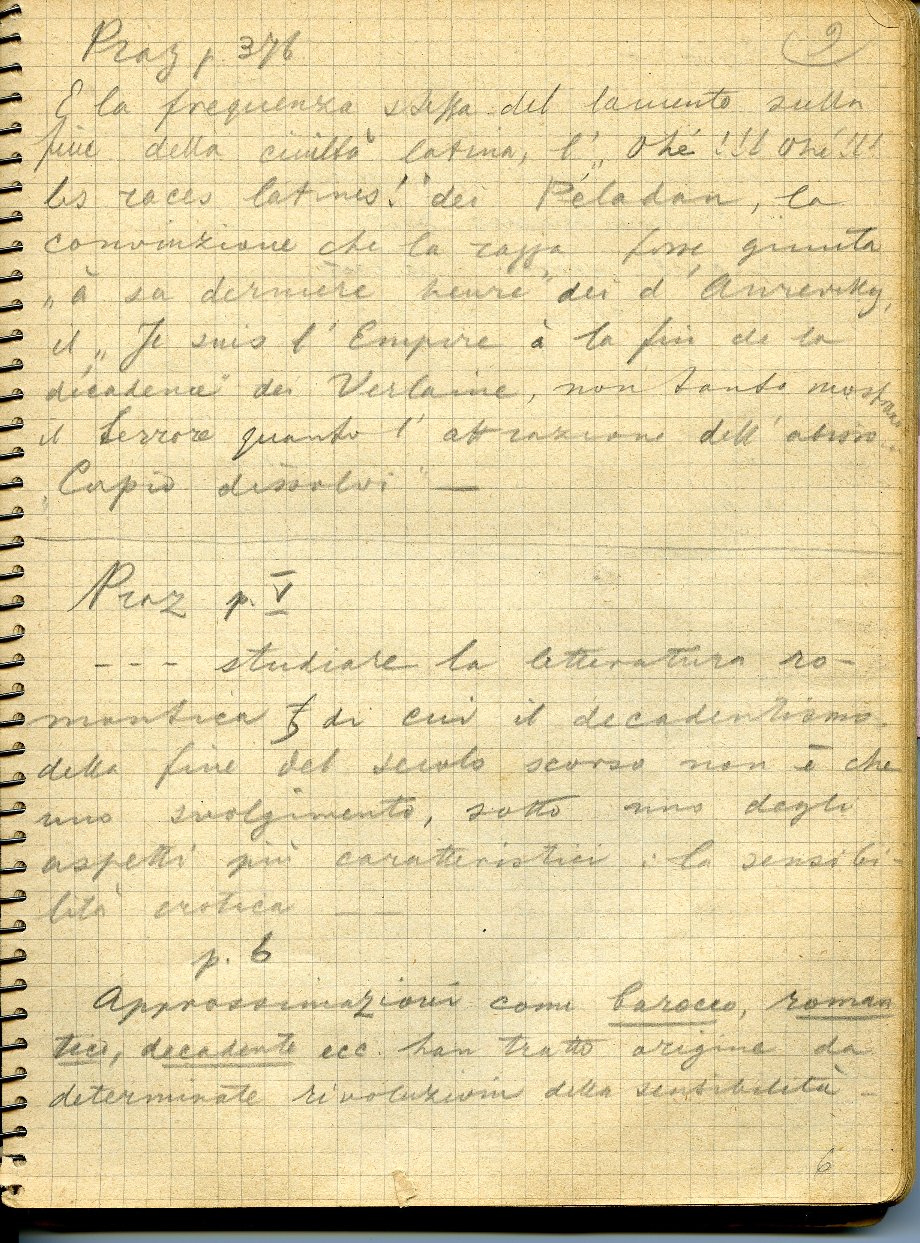 Praz p. 376
2
E la frequenza stessa del lamento sulla
fine della civiltà latina, l' „Ohé!!! Ohé!!!
les races latines!" dei Péladan, la
convinzione che la razza fosse giunta
„à sa dernière heure" dei d'Aurevilly,
il „Je suis l'Empire à la fin de la
décadence" dei Verlaine, non tanto
il terrore quanto l'attrazione dell'abisso
„Cupio dissolvi" —
Praz p. V
- - - studiare la letteratura ro-
mantica di cui il decadentismo
della fine del secolo scorso non è che
uno svolgimento, sotto uno degli
aspetti più caratteristici : la sensibi-
lità erotica — —
p. 6
Approssimazioni come barocco, roman
tico, decadente ecc. han tratto origine da
determinate rivoluzioni della sensibilità -
6